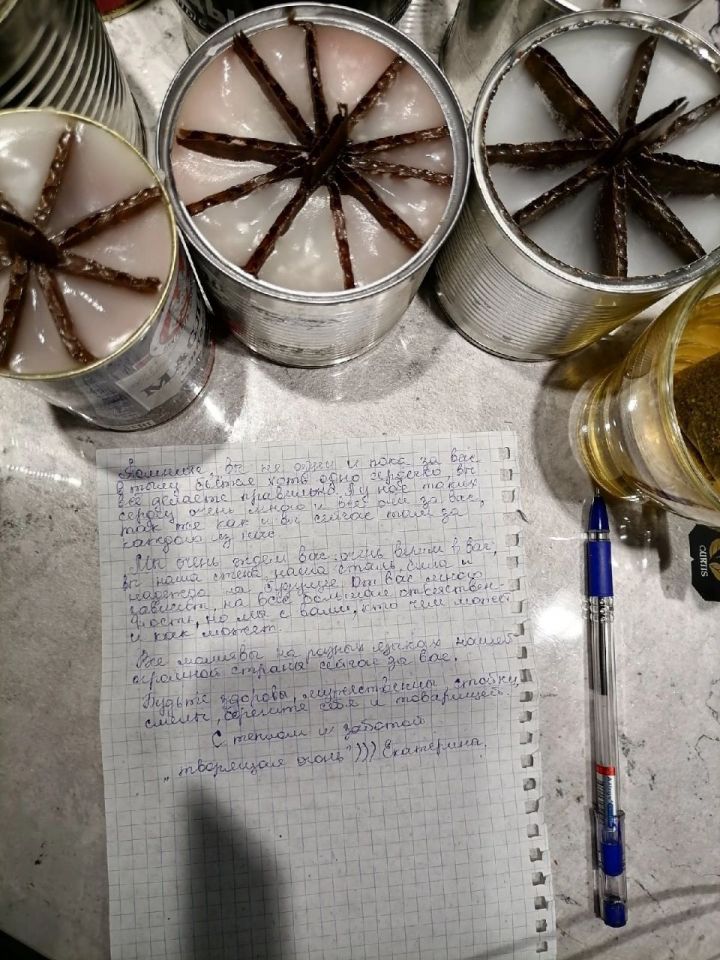 Помните, вы не одни и пока за вас
в тылу бьется хоть одно сердечко вы
все делаете правильно. А у нас таких
сердец очень много и все они за вас,
так же как и вы сейчас там за
каждого из нас.
Мы очень ждем вас, очень верим в вас,
вы наша стена, наша сталь, сила и
надежда на будущее. От вас много
зависит, на вас большая ответствен-
ность, но мы с вами, кто чем может
и как может.
Все молитвы на разных языках нашей
огромной страны сейчас за вас.
Будьте здоровы, мужественны, стойки,
смелы, берегите себя и товарищей.
С теплом и заботой
"творящая огонь"))) Екатерина.
CURTIS